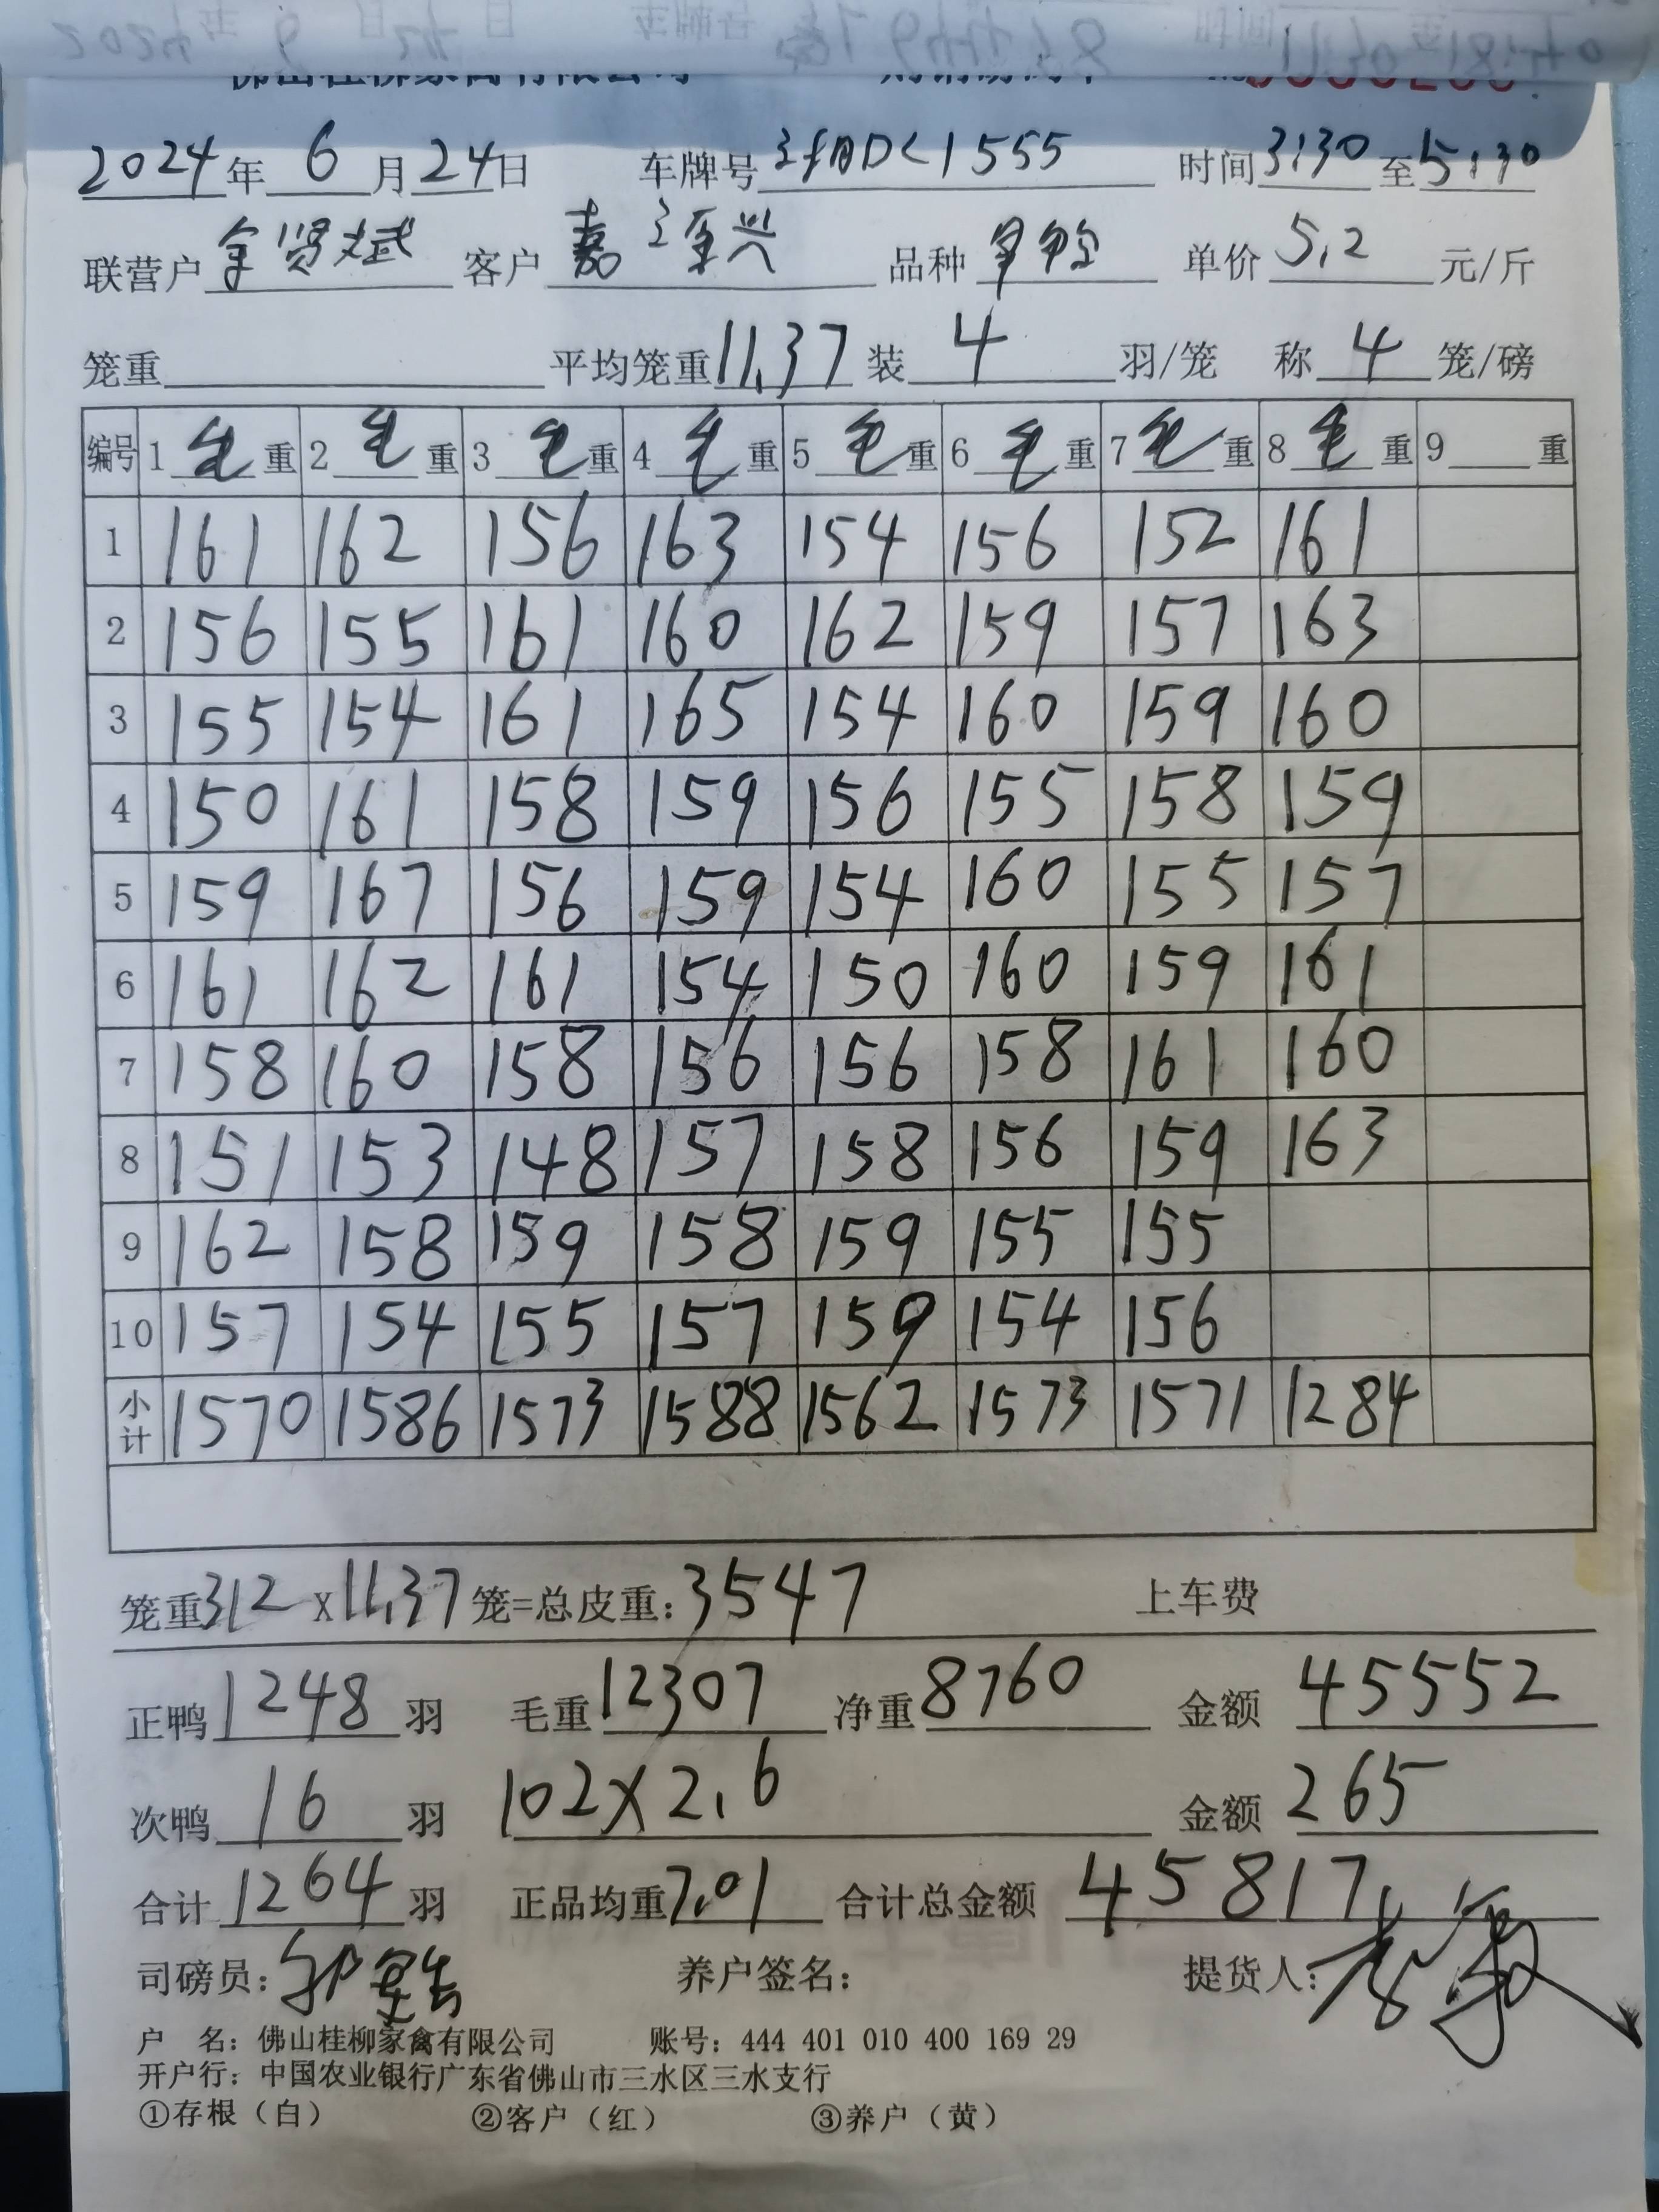 2024年6月24日 车牌号 DC1555 时间3:30至5:30
联营户余贤斌 客户嘉 兴 品种 单价5.2元/斤
笼重 平均笼重11.37装4羽/笼 称4笼/磅
编号 1毛重 2毛重 3毛重 4毛重 5毛重 6毛重 7毛重 8毛重 9重
1 161 162 156 163 154 156 152 161
2 156 155 161 160 162 159 157 163
3 155 154 161 165 154 160 159 160
4 150 161 158 159 156 155 158 159
5 159 167 156 159 154 160 155 157
6 161 162 161 154 150 160 159 161
7 158 160 158 156 156 158 161 160
8 151 153 148 157 158 156 159 163
9 162 158 159 158 159 155 155
10 157 154 155 157 159 154 156
小计 1570 1586 1573 1588 1562 1573 1571 1284
笼重312x11.37笼=总皮重:3547 上车费
正鸭1248羽 毛重12307 净重8760 金额45552
次鸭16羽 102x2.6 金额265
合计1264羽 正品均重7.01 合计总金额45817
司磅员: 养户签名: 提货人:
户 名:佛山桂柳家禽有限公司 账号:444 401 010 400 169 29
开户行:中国农业银行广东省佛山市三水区三水支行
①存根(白) ②客户(红) ③养户(黄)